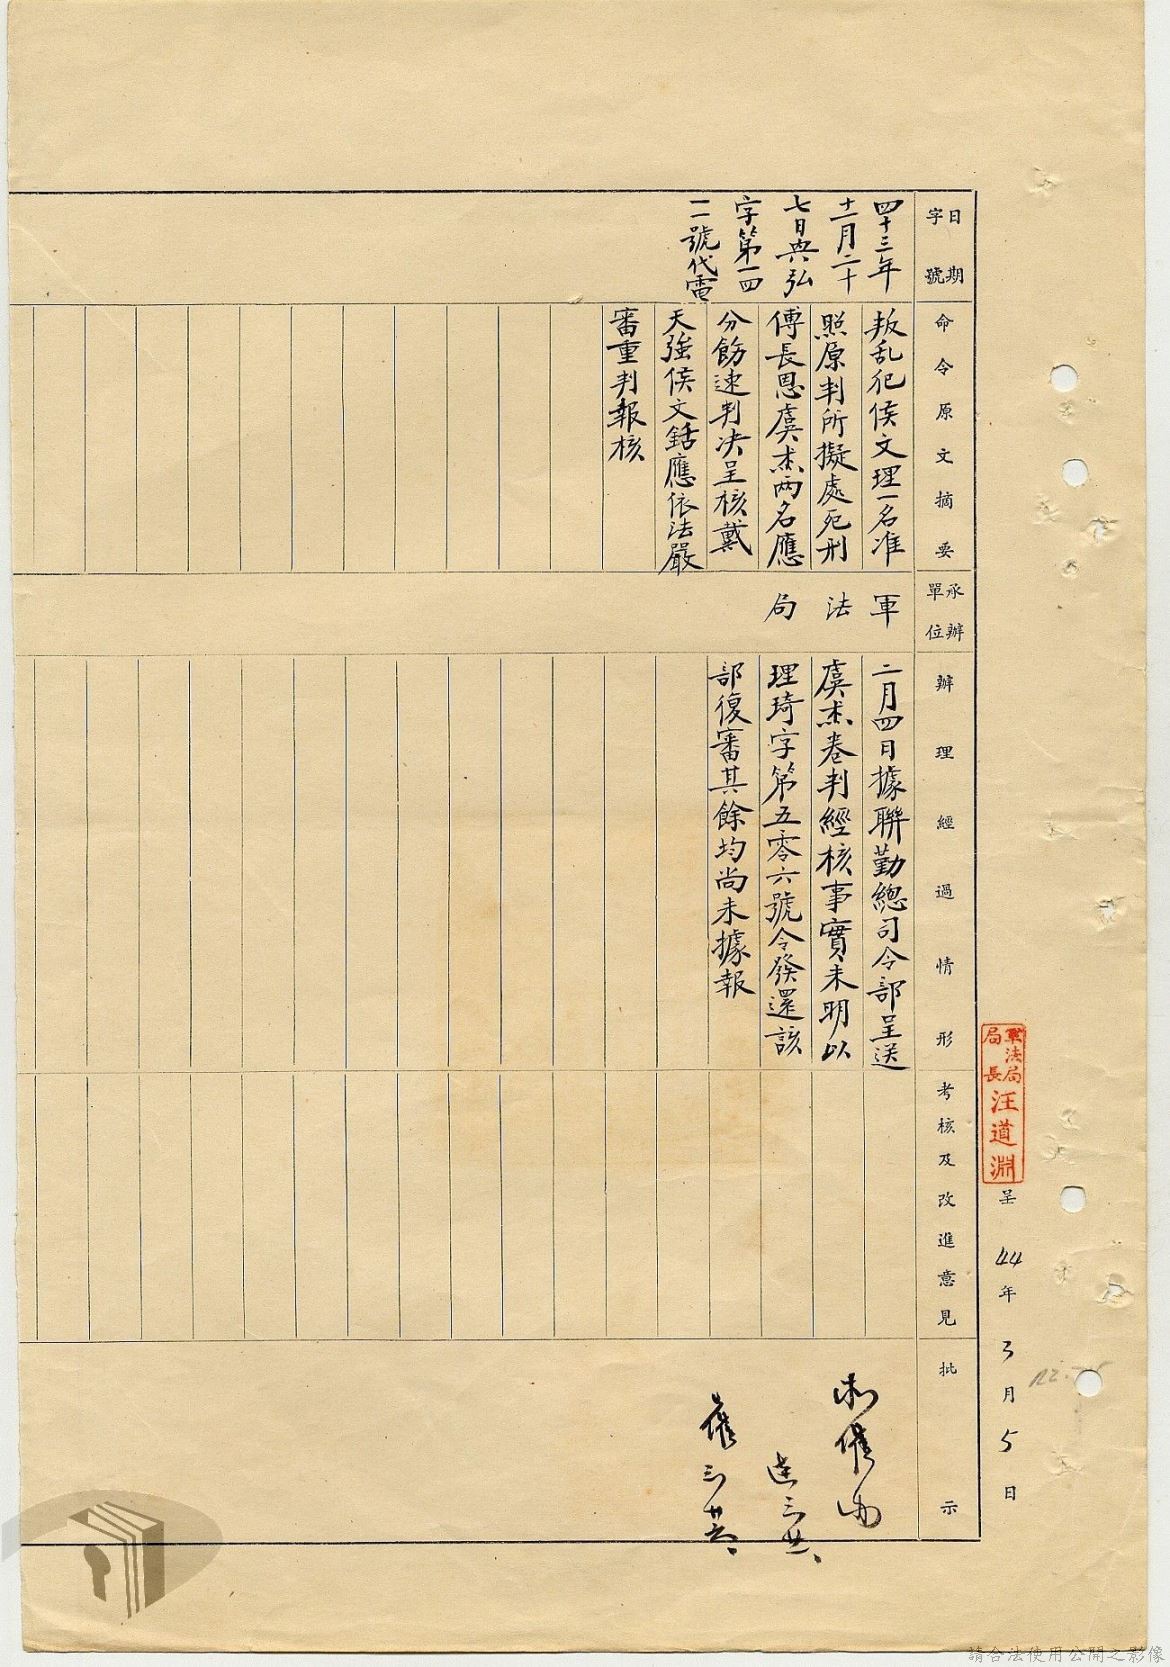 日期
字號
四十三年
十一月二十
七日典弘
字第一四
一一號代電
命令原文摘要
叛乱犯侯文理一名准
照原判所擬處死刑
傅長恩虞杰兩名應
分飭速判决呈核戴
天強侯文銛應依法嚴
審重判報核
承辦
單位
軍
法
局
辦理經過情形
二月四日據聯勤總司令部呈送
虞杰卷判經核事實未明以
理琦字第五零六號令發還該
部復審其餘均尚未據報
考核及改進意見
批示
軍法局
局長
汪道淵
呈 44年3月5日
請合法使用公開之影像